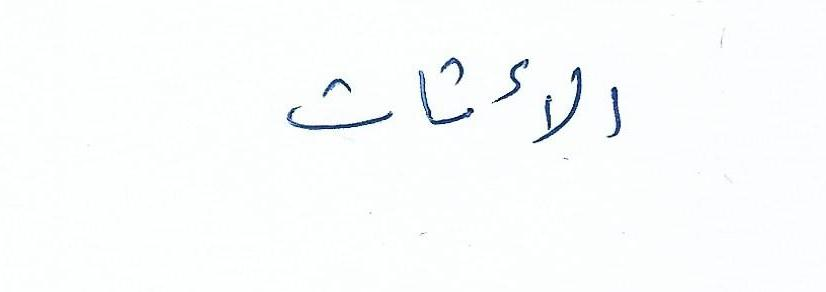 الأثاث